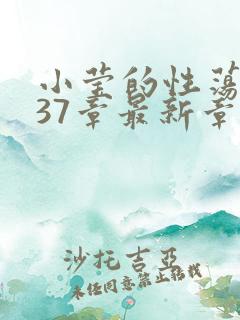 小莹的性荡
37章最新章
沙托吉亚
未经同意禁止转载